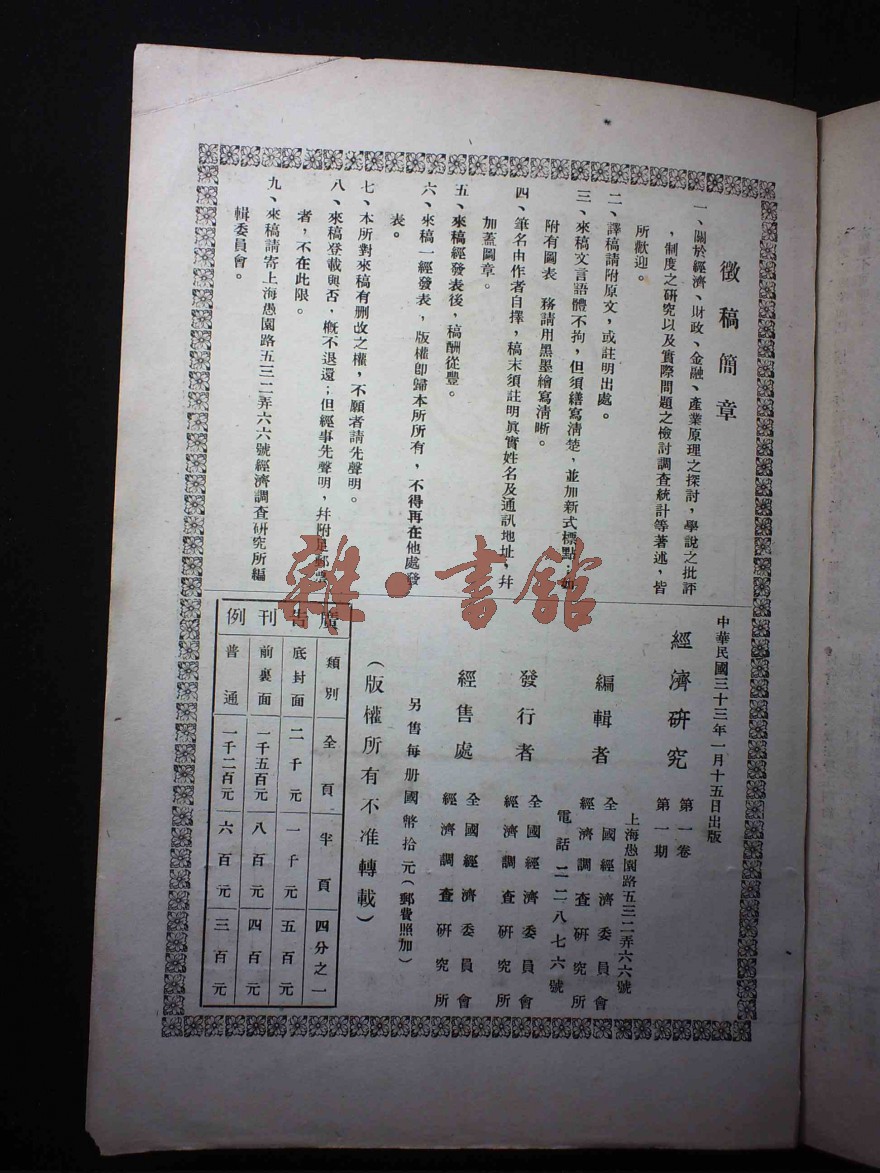 徵稿簡章
一、關於經濟、財政、金融、產業原理之探討，學說之批評
，制度之研究以及實際問題之檢討調查統計等著述，皆
所歡迎。
二、譯稿請附原文，或註明出處。
三、來稿文言語體不拘，但須繕寫清楚，並加新式標點；如
附有圖表　務請用黑墨繪寫清晰。
四、筆名由作者自擇，稿末須註明眞實姓名及通訊地址，幷
加蓋圖章。
五、來稿經發表後，稿酬從豐。
六、來稿一經發表，版權卽歸本所所有，不得再在他處發
表。
七、本所對來稿有删改之權，不願者請先聲明。
八、來稿登載與否，槪不退還；但經事先聲明，幷附足郵票
者，不在此限。
九、來稿請寄上海愚園路五三二弄六六號經濟調查研究所編
輯委員會。
中華民國三十三年一月十五日出版
經濟研究　第一卷　第一期
上海愚園路五三二弄六六號
編輯者　全國經濟委員會經濟調查研究所
電話二二八七六號
發行者　全國經濟委員會經濟調查研究所
經售處　全國經濟委員會經濟調查研究所
另售每册國幣拾元（郵費照加）
（版權所有不准轉載）
廣告刊例
類別　全頁　半頁　四分之一
底封面　二千元　一千元　五百元
前裏面　一千五百元　八百元　四百元
普通　一千二百元　六百元　三百元
雜·書館